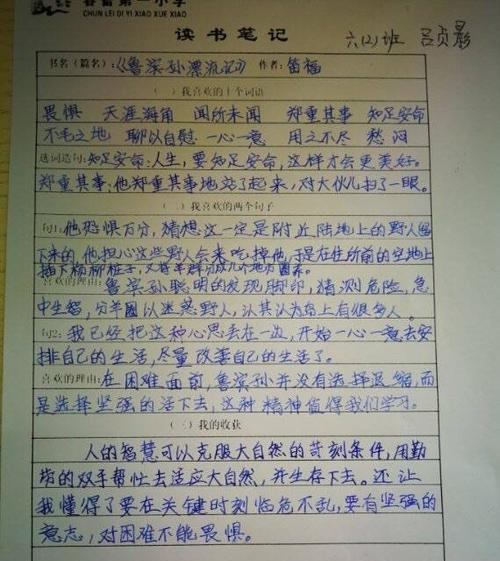 春蕾第一小学
CHUN LEI DI YI XIAO XUE XIAO
读书笔记
六(2)班 吕贞影
书名(篇名):《鲁滨孙漂流记》 作者:笛福
(一)我喜欢的十个词语
畏惧 天涯海角 闻所未闻 郑重其事 知足安命
不毛之地 聊以自慰 一心一意 用之不尽 愁闷
选词造句:知足安命:人生,要知足安命,这样才会更美好。
郑重其事:他郑重其事地站了起来,对大伙儿扫了一眼。
(二)我喜欢的两个句子
句1:他恐惧万分,猜想这一定是附近陆地上的野人留
下来的,他担心这些野人会来吃掉他,于是在住所前的空地上
插下杨柳桩子,又将羊群分成几个地方圈养。
喜欢的理由:鲁滨孙聪明的发现脚印,猜测危险,急
中生智,分羊圈以迷惑野人,认其认为岛上有很多人。
句2:我已经把这种心思丢在一边,开始一心一意去安
排自己的生活,尽量改善自己的生活了。
喜欢的理由:在困难面前,鲁滨孙并没有选择退缩,而
是选择坚强的活下去,这种精神值得我们学习。
(三)我的收获
人的智慧可以克服大自然的苛刻条件,用勤
劳的双手帮忙去适应大自然,并生存下去。还让
我懂得了要在关键时刻临危不乱,要有坚强的
意志,对困难不能畏惧。